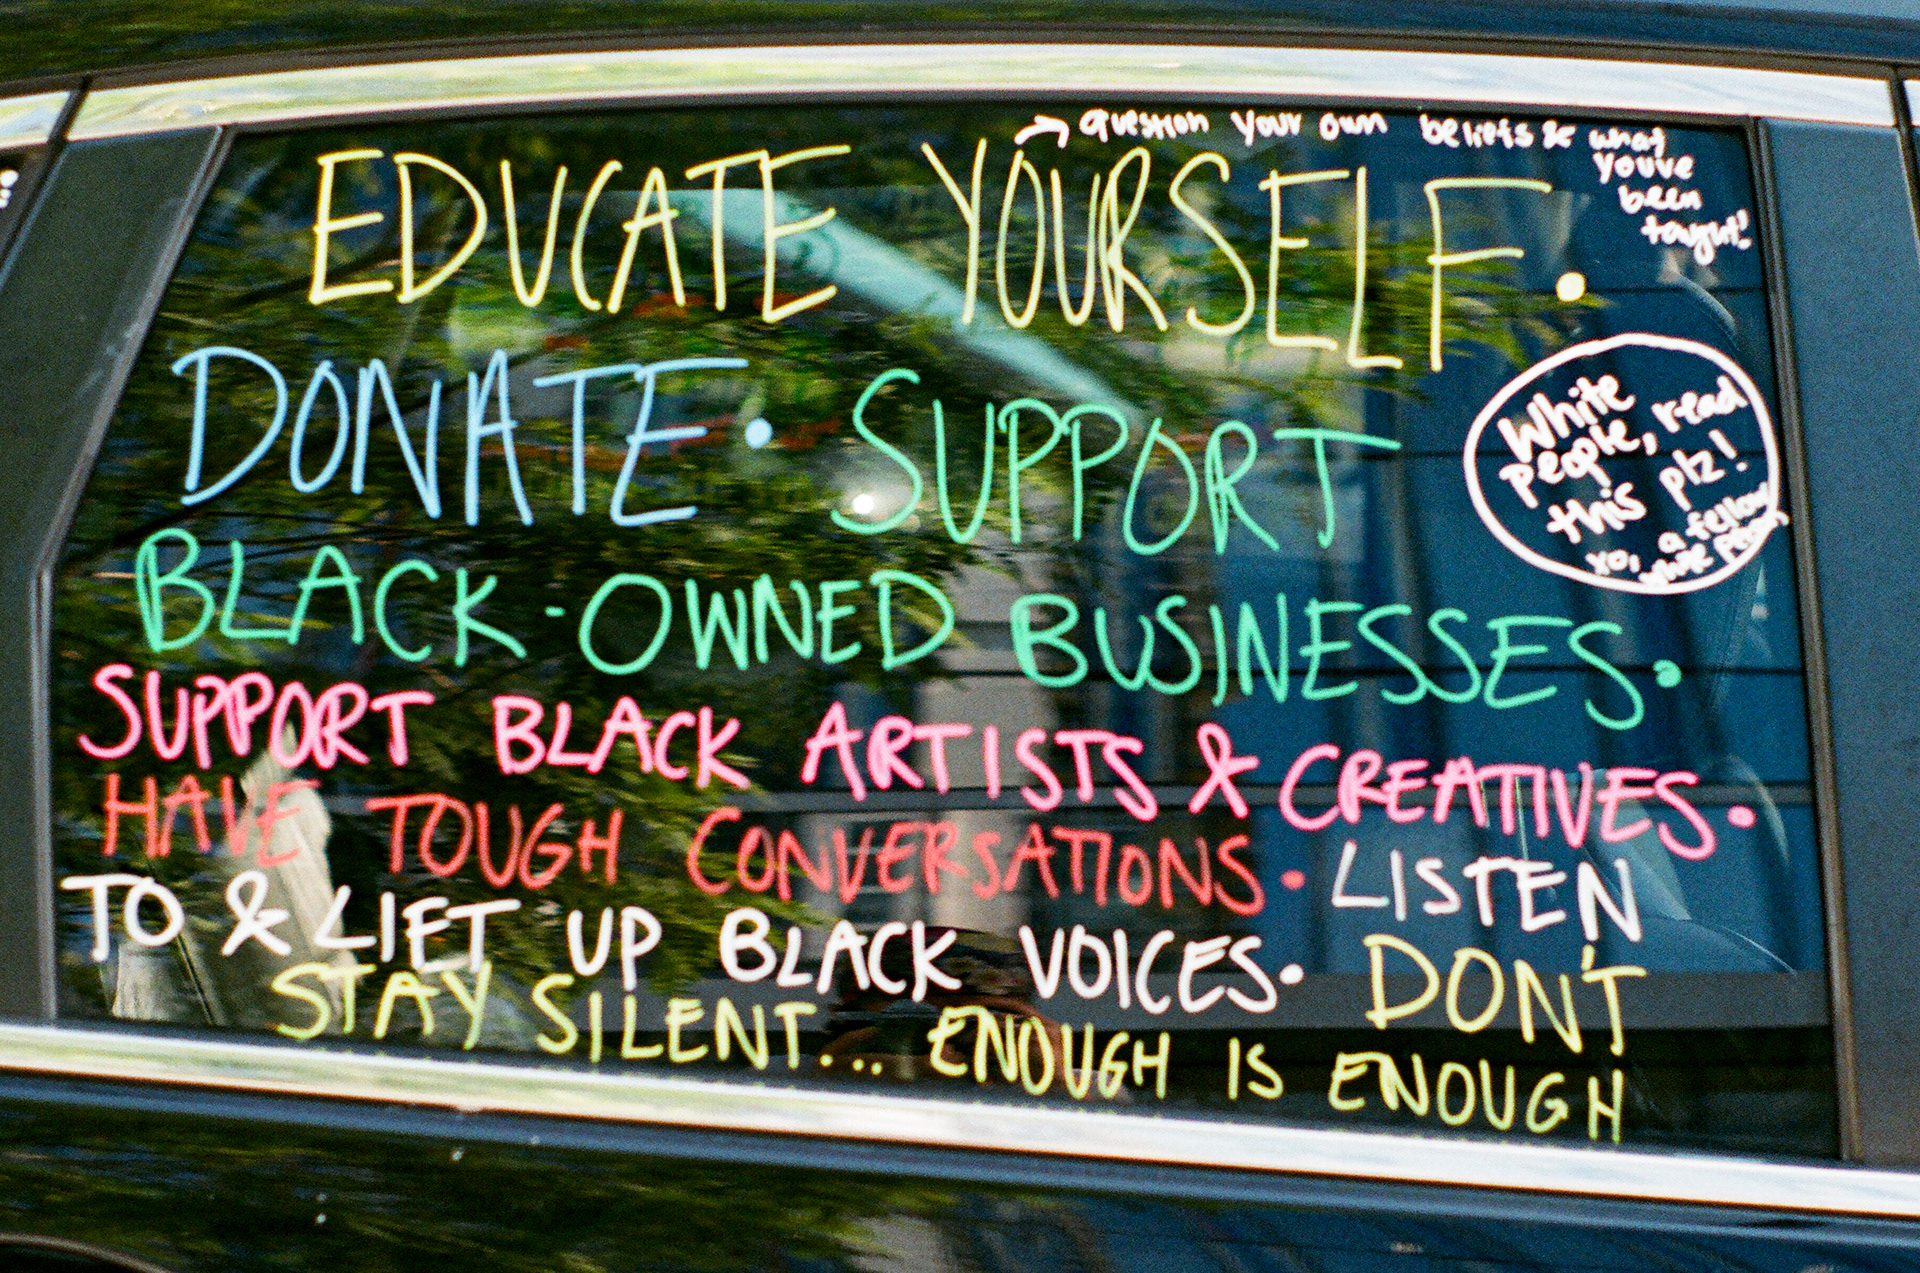 → question your own beliefs & what
you've
been
taught!
EDUCATE YOURSELF.
DONATE. SUPPORT
BLACK-OWNED BUSINESSES.
White
people, read
this plz!
xo, a fellow
white person
SUPPORT BLACK ARTISTS & CREATIVES.
HAVE TOUGH CONVERSATIONS. LISTEN
TO & LIFT UP BLACK VOICES. DON'T
STAY SILENT... ENOUGH IS ENOUGH